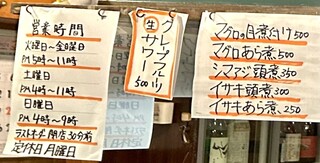 営業時間
火曜日〜金曜日
PM5〜11時
土曜日
PM4〜11時
日曜日
PM4〜9時
ラストオーダー閉店30分前
定休日月曜日
生グレープフルーツ
サワー
500
マグロの目煮付け500
マグロあら煮500
シマアジ頭煮350
イサキ頭煮300
イサキあら煮250